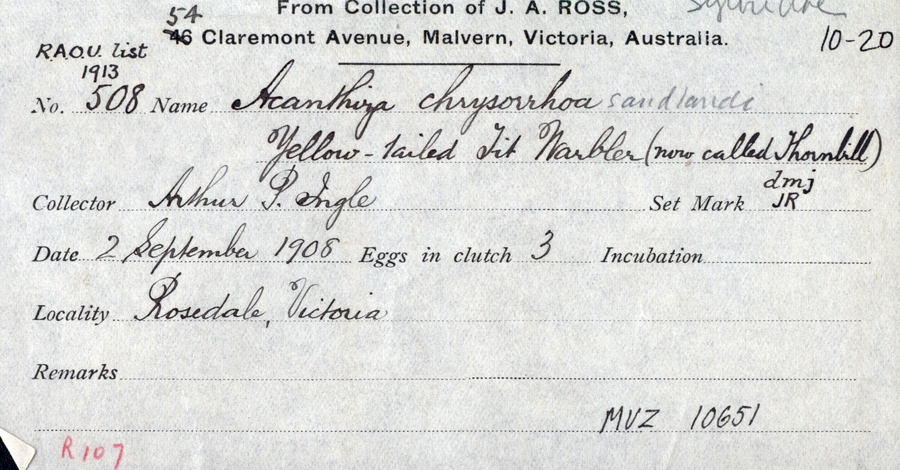 From Collection of J. A. ROSS, Sylviidae
54
46 Claremont Avenue, Malvern, Victoria, Australia. 10-20
R.A.O.U. list
1913
No. 508 Name Acanthiza chrysorrhoa sandlandi
Yellow-tailed Tit Warbler (now called Thornbill)
Collector Arthur P. Ingle Set Mark dmj
JR
Date 2 September 1908 Eggs in clutch 3 Incubation
Locality Rosedale, Victoria
Remarks
MVZ 10651
R107